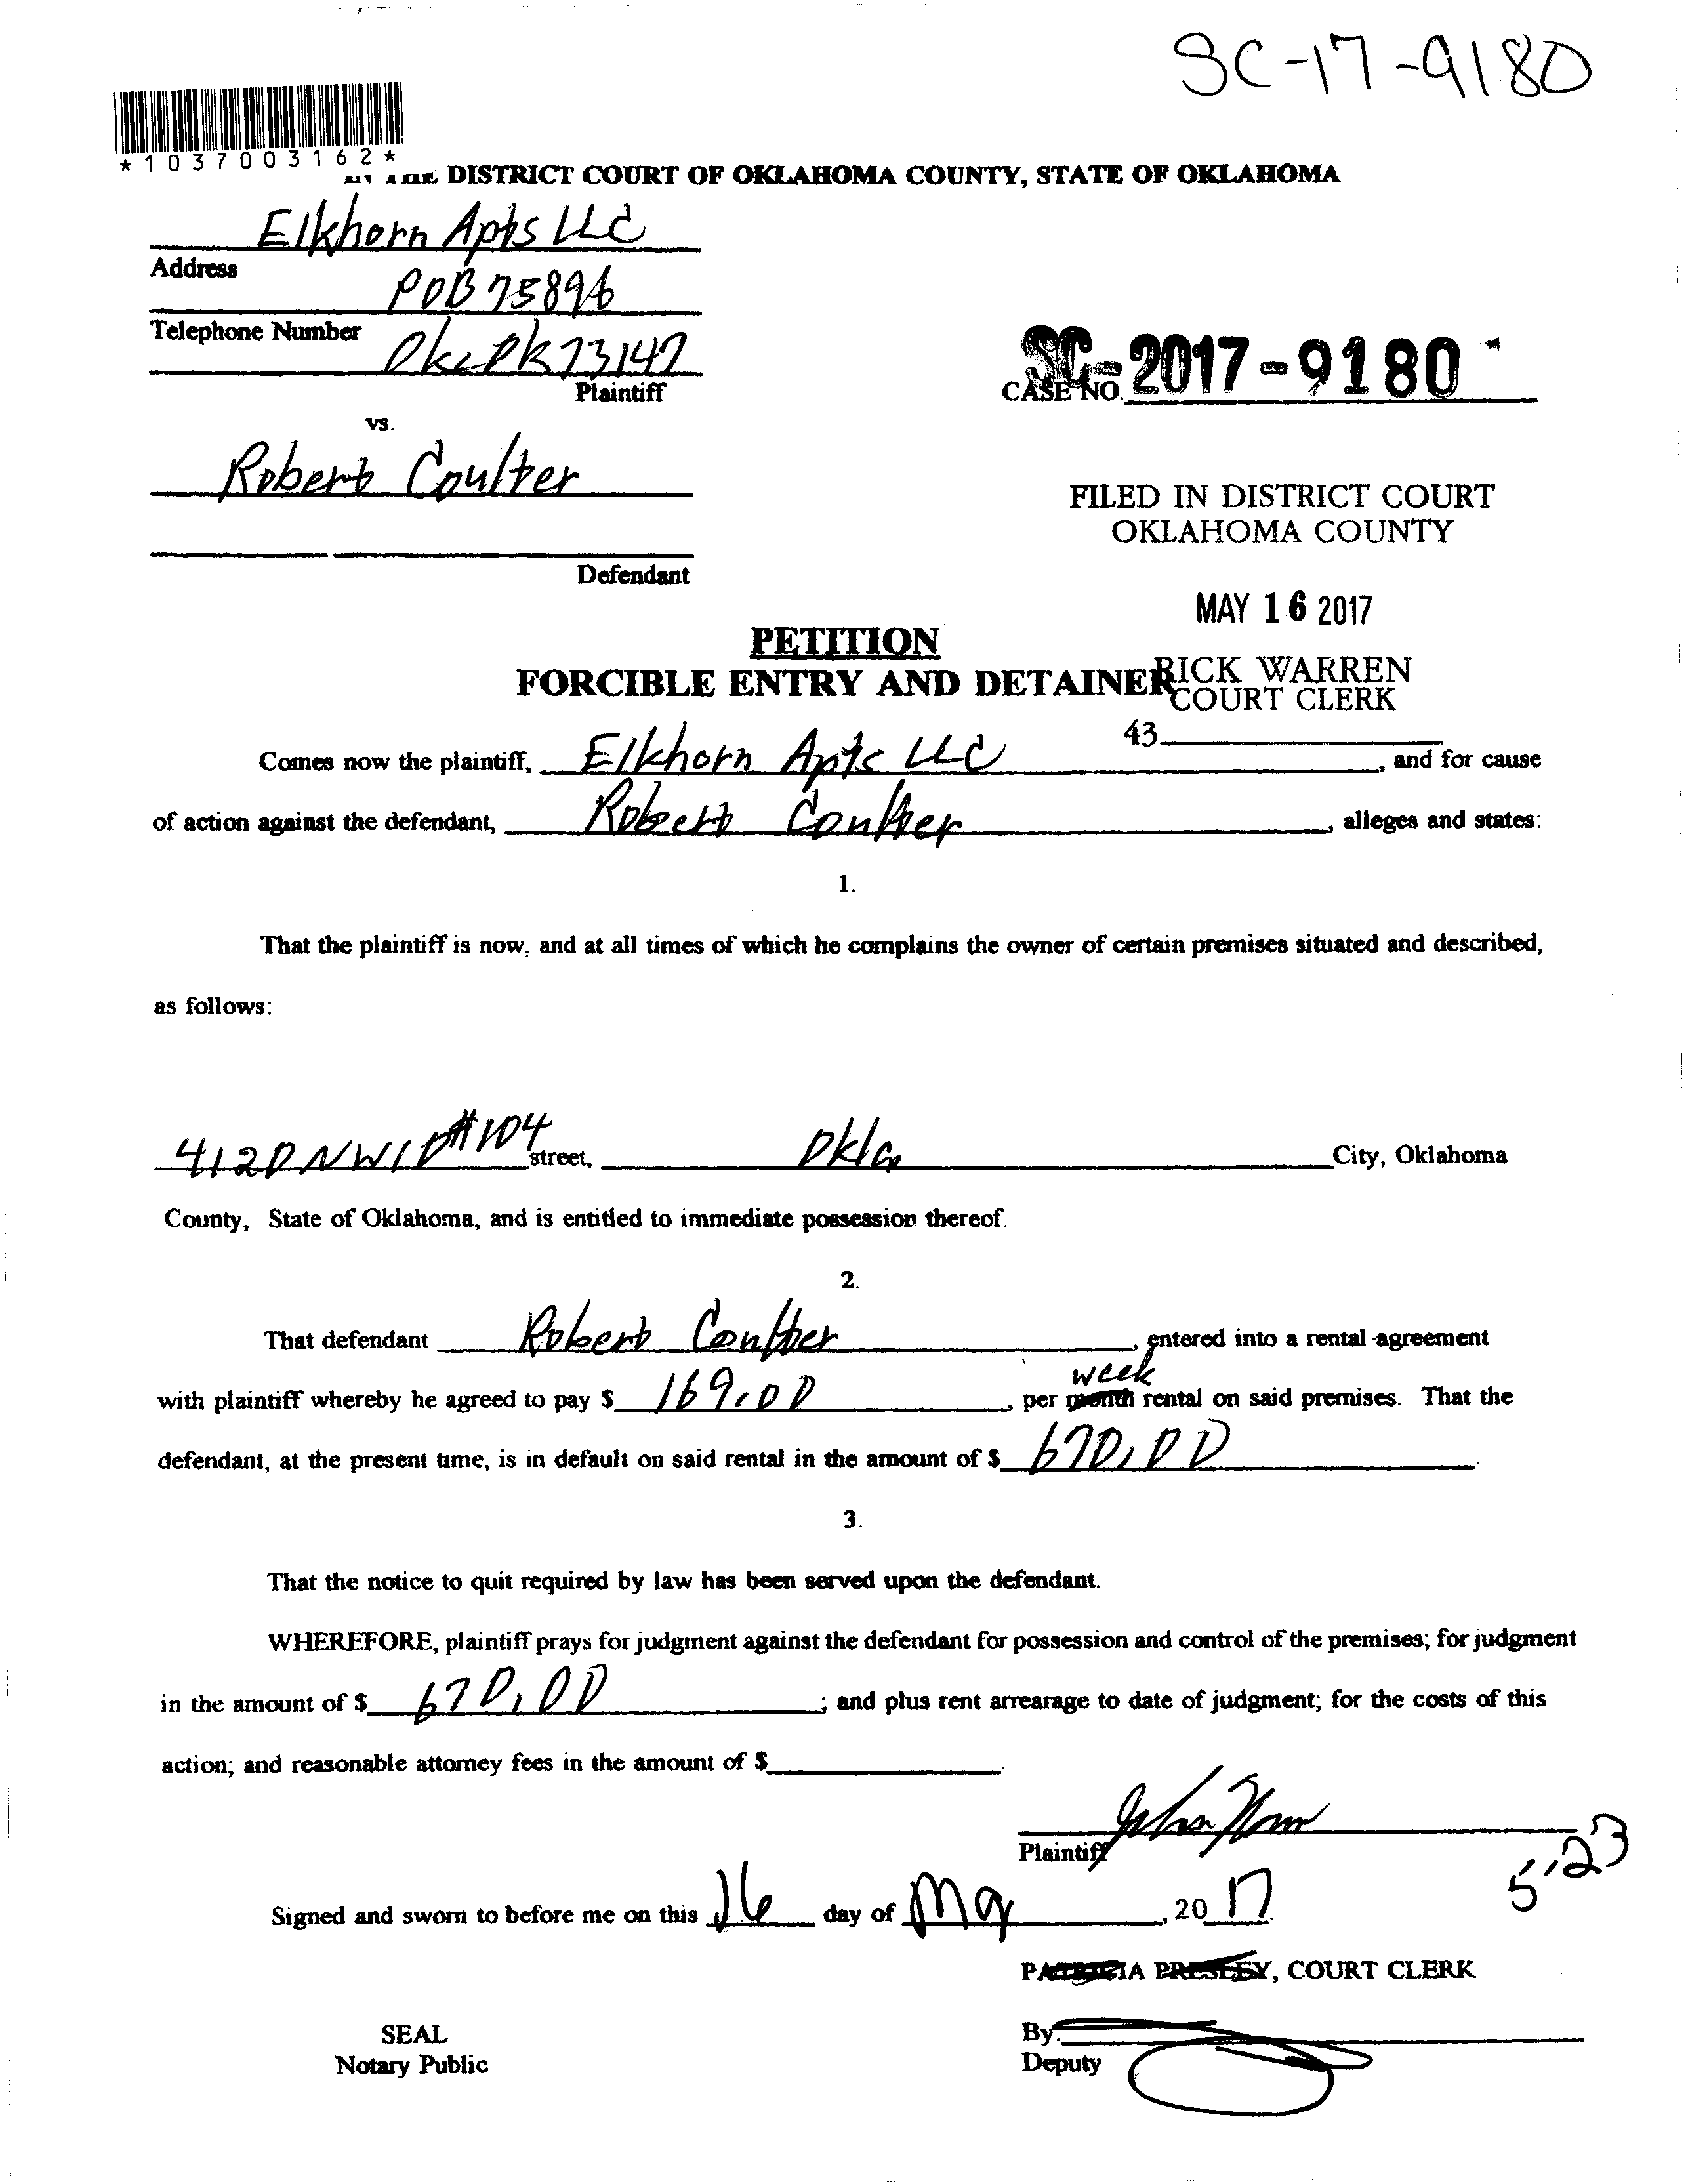 SC-17-9180
*1037003162*
DISTRICT COURT OF OKLAHOMA COUNTY, STATE OF OKLAHOMA
Elkhorn Apts LLC
Address
POB 75896
Telephone Number
Okc Ok 73147
Plaintiff
SC-2017-9180
CASE NO.
vs.
Robert Coulter
FILED IN DISTRICT COURT
OKLAHOMA COUNTY
Defendant
MAY 16 2017
PETITION
FORCIBLE ENTRY AND DETAINER
RICK WARREN
COURT CLERK
43
Comes now the plaintiff, Elkhorn Apts LLC, and for cause
of action against the defendant, Robert Coulter, alleges and states:
1.
That the plaintiff is now, and at all times of which he complains the owner of certain premises situated and described,
as follows:
4120 NW 10 #104 street, Okla City, Oklahoma
County, State of Oklahoma, and is entitled to immediate possession thereof.
2.
That defendant Robert Coulter, entered into a rental agreement
week
with plaintiff whereby he agreed to pay $ 169.00, per month rental on said premises. That the
defendant, at the present time, is in default on said rental in the amount of $ 670.00.
3.
That the notice to quit required by law has been served upon the defendant.
WHEREFORE, plaintiff prays for judgment against the defendant for possession and control of the premises; for judgment
in the amount of $ 670.00; and plus rent arrearage to date of judgment; for the costs of this
action; and reasonable attorney fees in the amount of $.
Plaintiff
5,23
Signed and sworn to before me on this 16 day of May, 2017
PATRICIA PRESLEY, COURT CLERK
SEAL
By:
Notary Public
Deputy